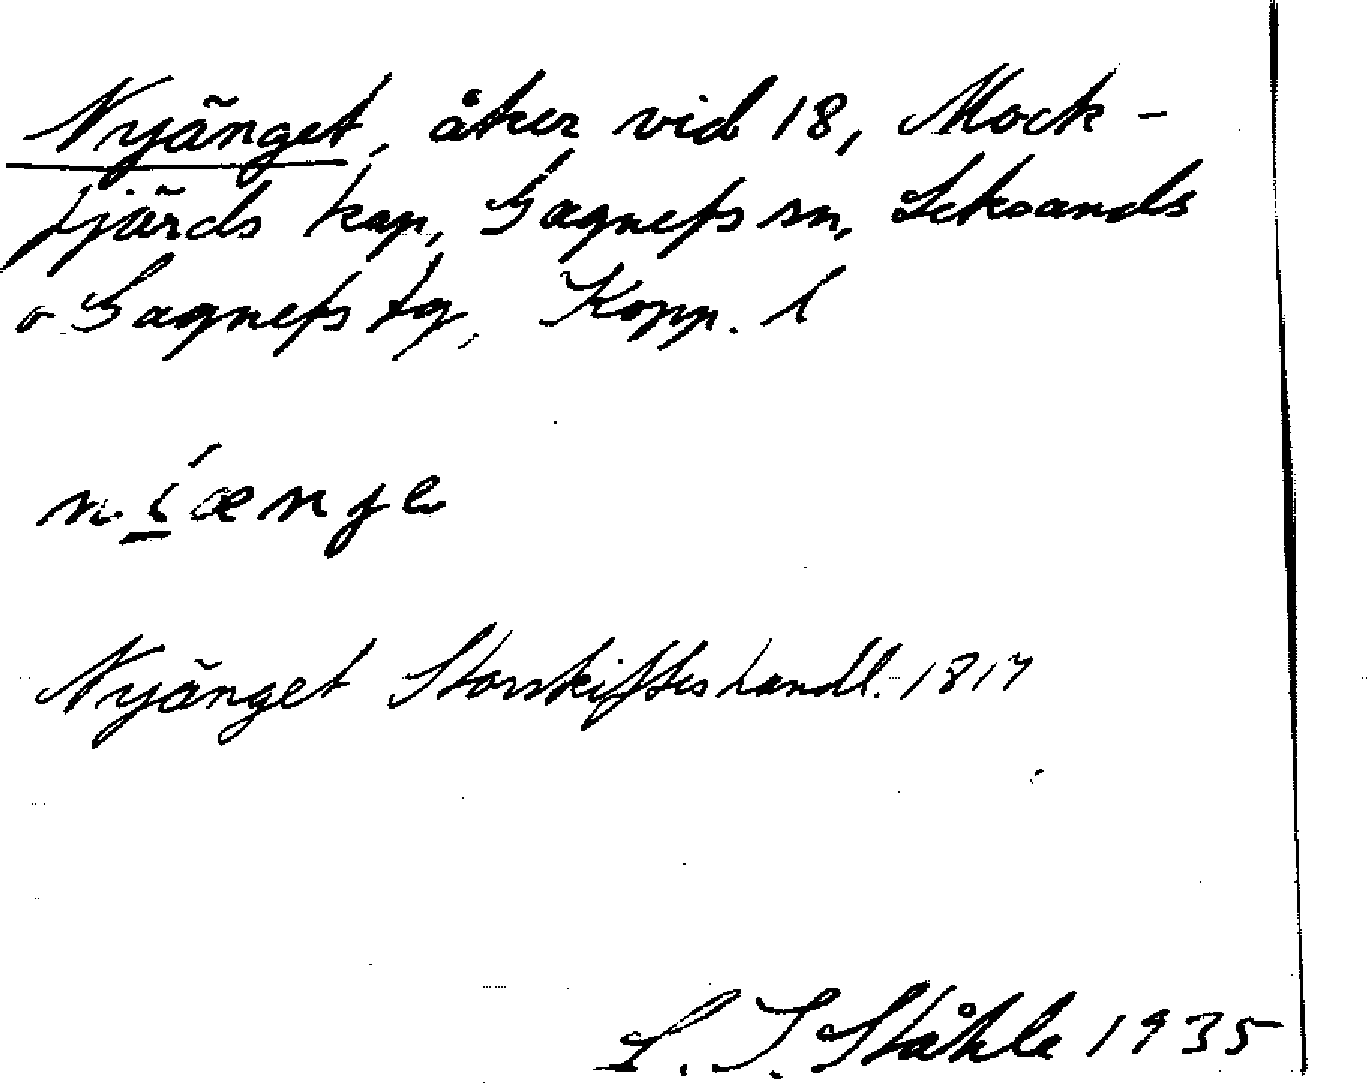 Nyänget, åker vid 18, Mock-
fjärds kap, Gagnefs sn, Leksands
o Gagnefs tg, Kopp. l
Nyänget Storskifteshandl. 1817
C. I. Ståhle 1935